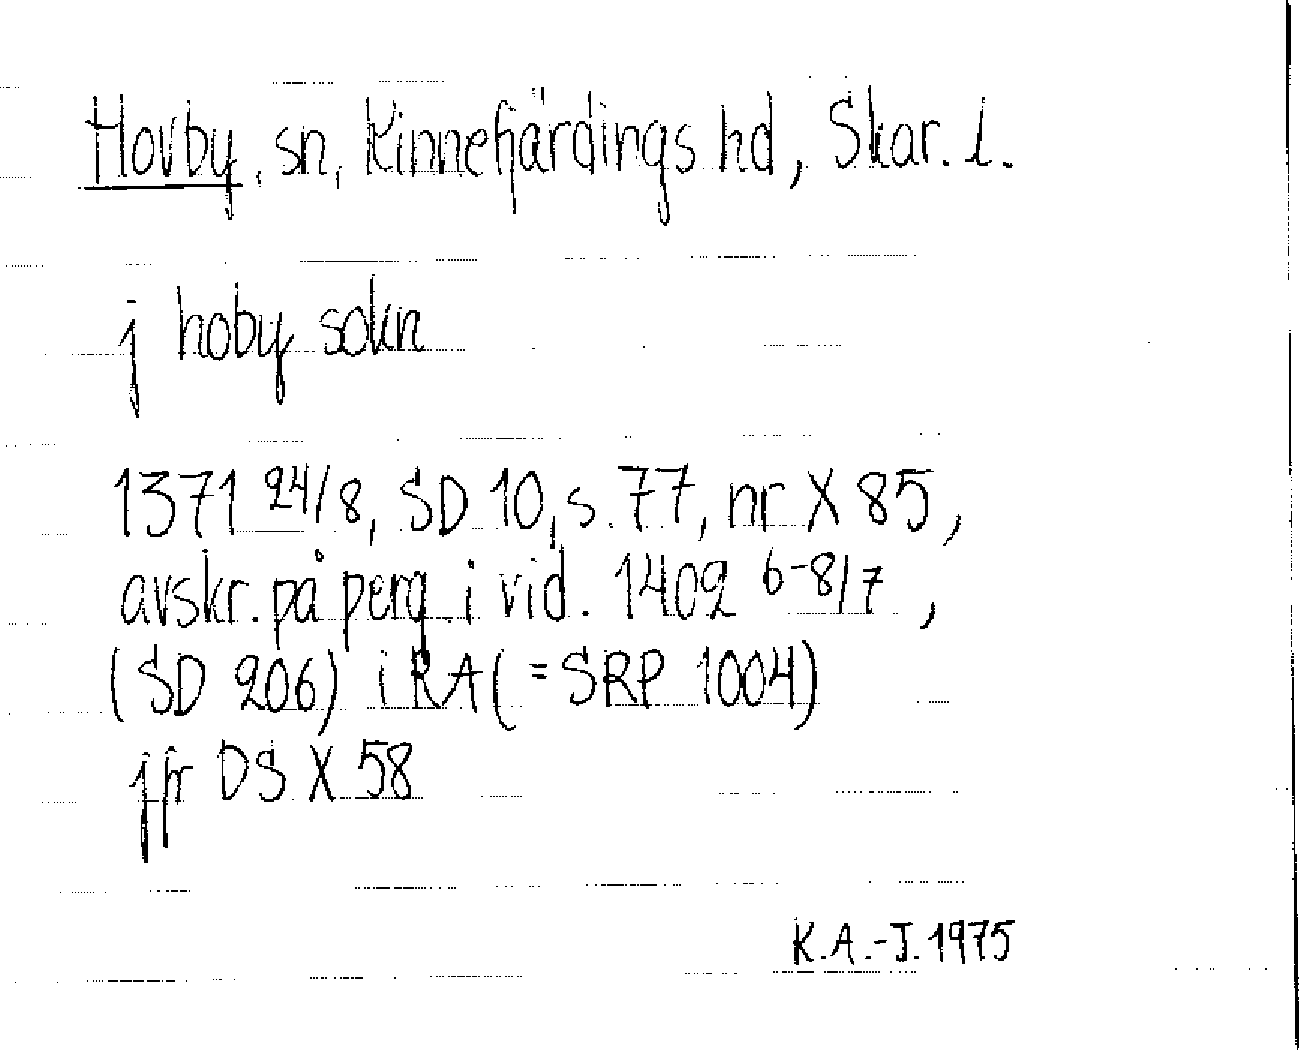 Hovby, sn, Kinnefjärdings hd, Skar. l.
j hoby sokn
1371 24/8, SD 10, s. 77, nr X 85,
avskr. på perg. i vid. 1402 6-8/7,
(SD 206) i RA (=SRP 1004)
jfr DS X 58
K.A.-J. 1975